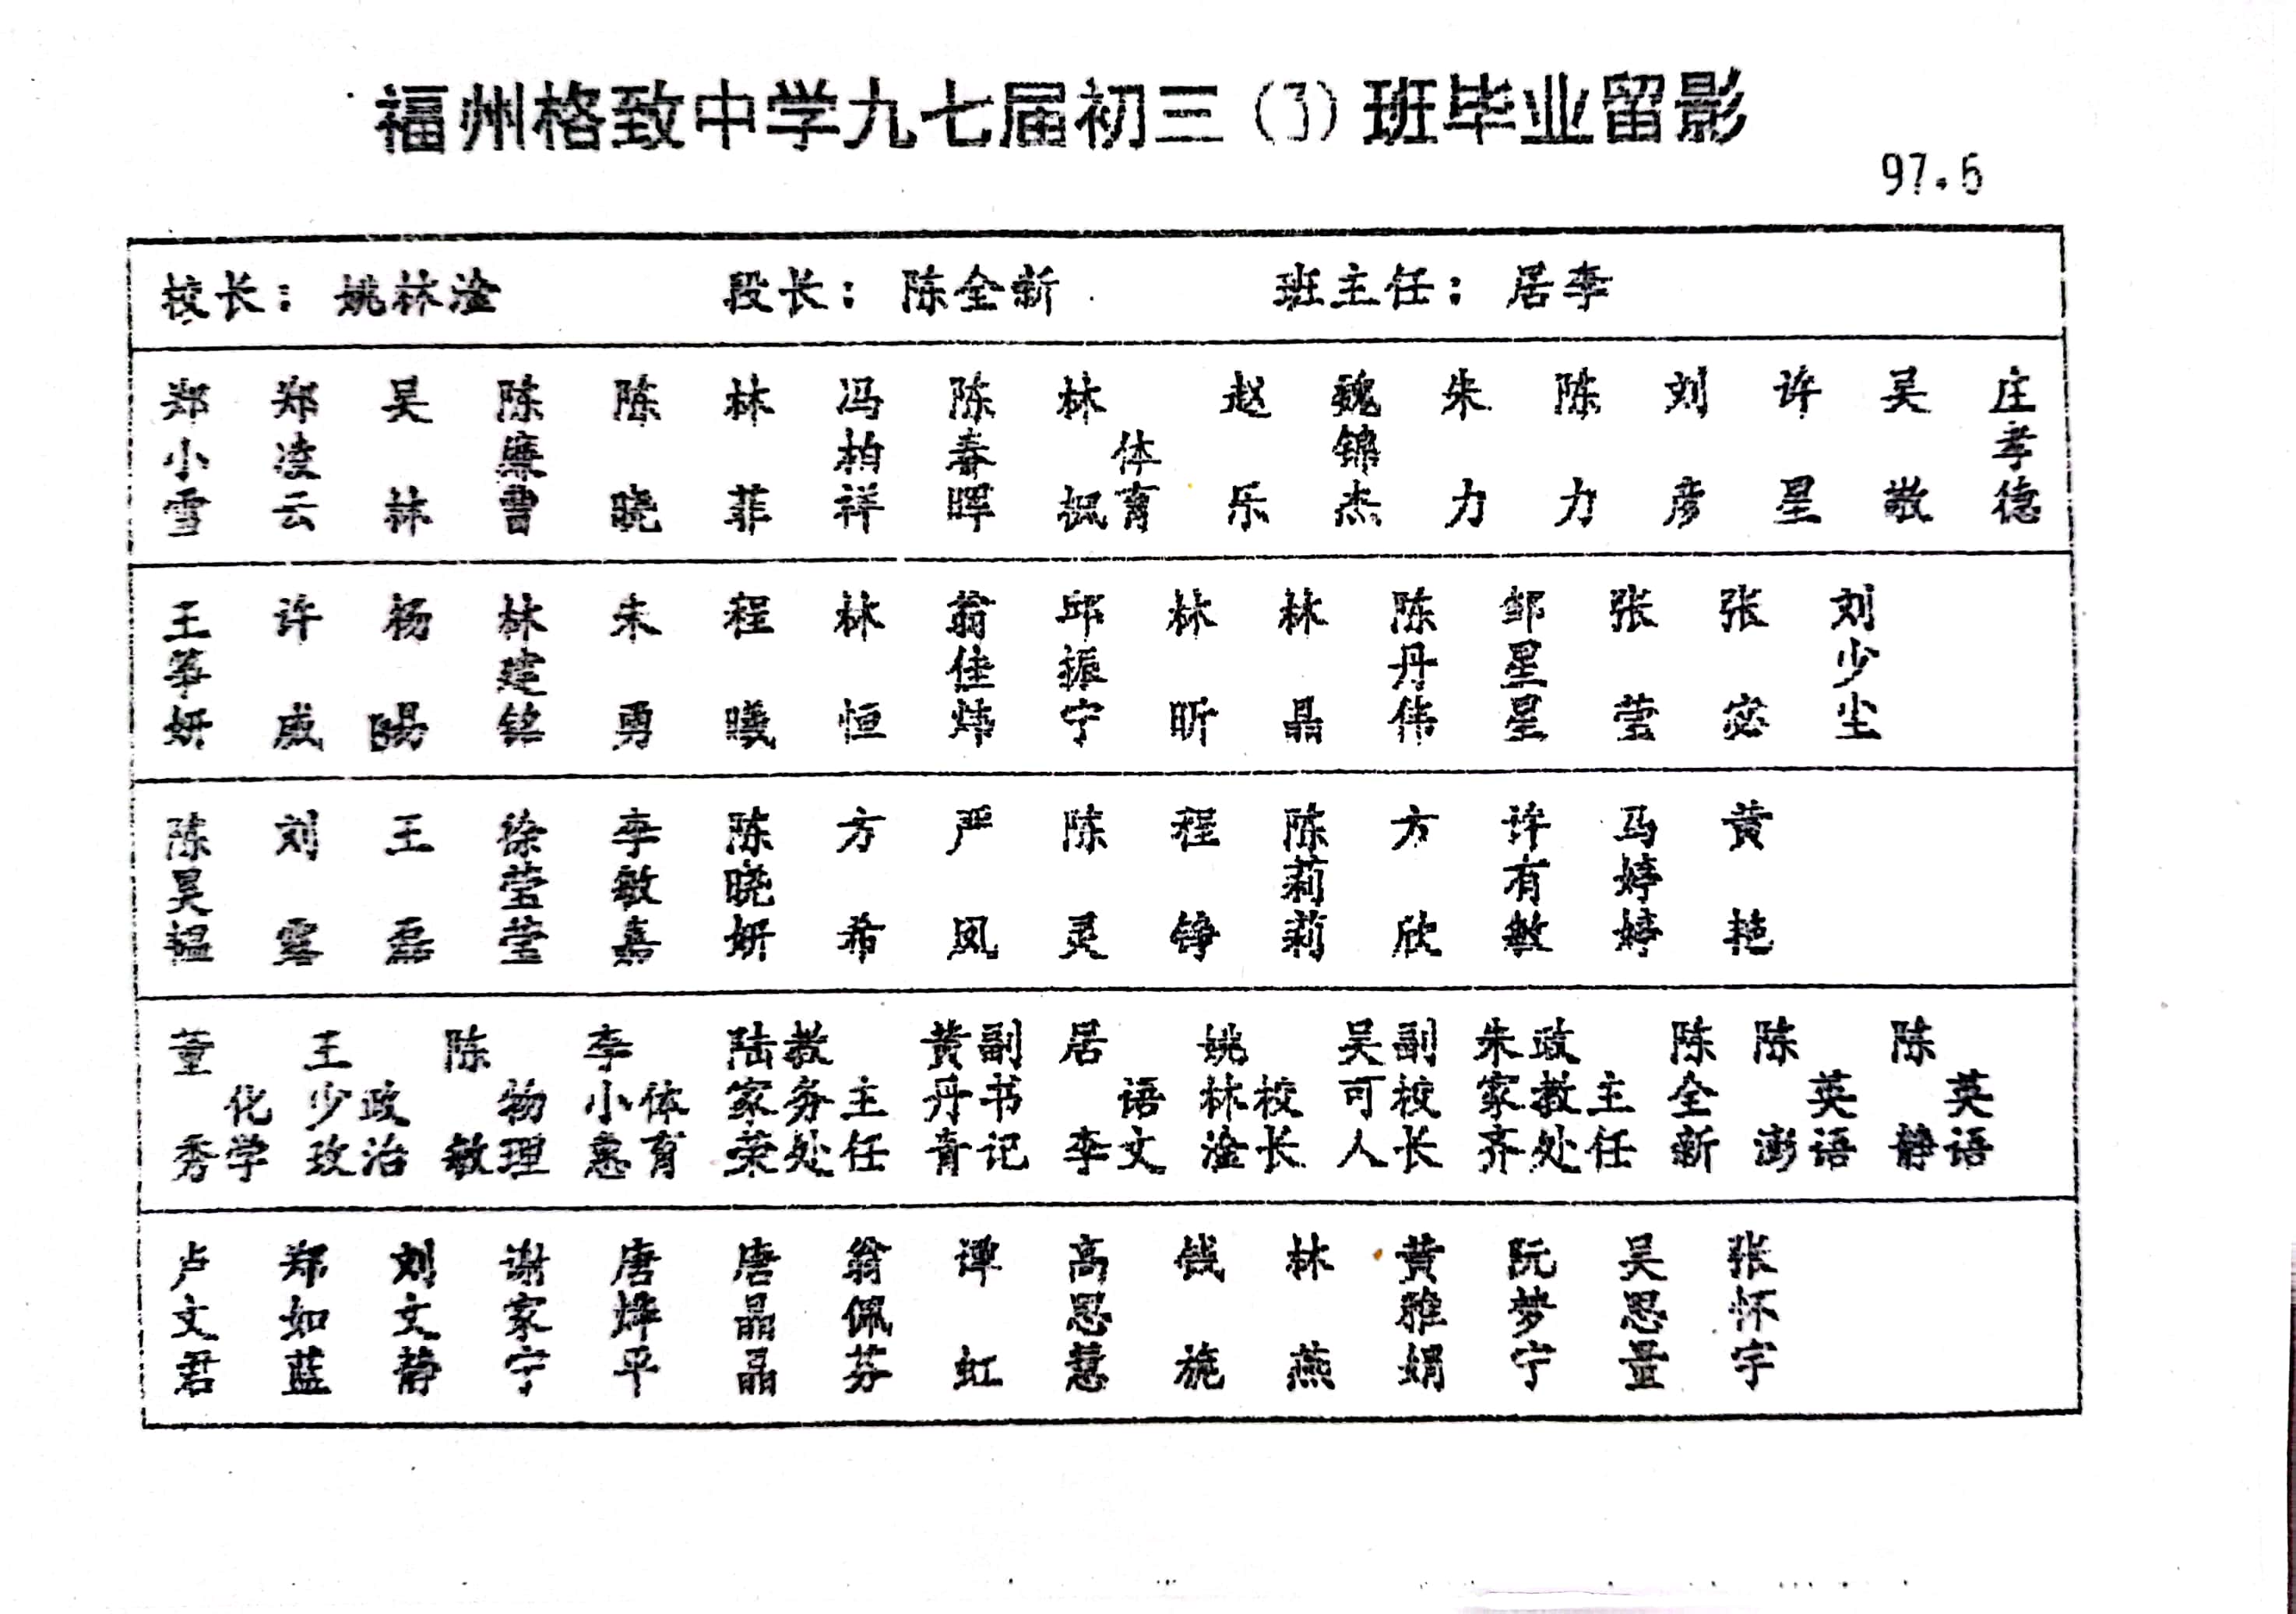 福州格致中学九七届初三(3)班毕业留影
97.6
校长：姚林淦 段长：陈全新 班主任：居李
郑小雪 郑凌云 吴林 陈廉曹 陈晓 林菲 冯柏祥 陈春晖 林枫 体育 赵乐 魏锦杰 朱力 陈力 刘彦 许星 吴敏 庄孝德
王筝妍 许威 杨旸 林建铭 朱勇 程曦 林恒 翁佳炜 邱振宁 林昕 林晶 陈丹伟 邹星星 张莹 张宓 刘少尘
陈昊韫 刘露 王磊 徐莹莹 李敏嘉 陈晓妍 方希 严凤 陈灵 程铮 陈莉莉 方欣 许有敏 马婷婷 黄艳
董秀 化学 王少玫 政治 陈敏 物理 李小惠 体育 陆家荣 教务处主任 黄丹青 副书记 居李 语文 姚林淦 校长 吴可人 副校长 朱家齐 政教处主任 陈全新 陈澎 英语 陈静 英语
卢文君 郑如蓝 刘文静 谢家宁 唐烨平 唐晶晶 翁佩芬 谭虹 高思慧 钱施 林燕 黄雅娟 阮梦宁 吴思量 张怀宇